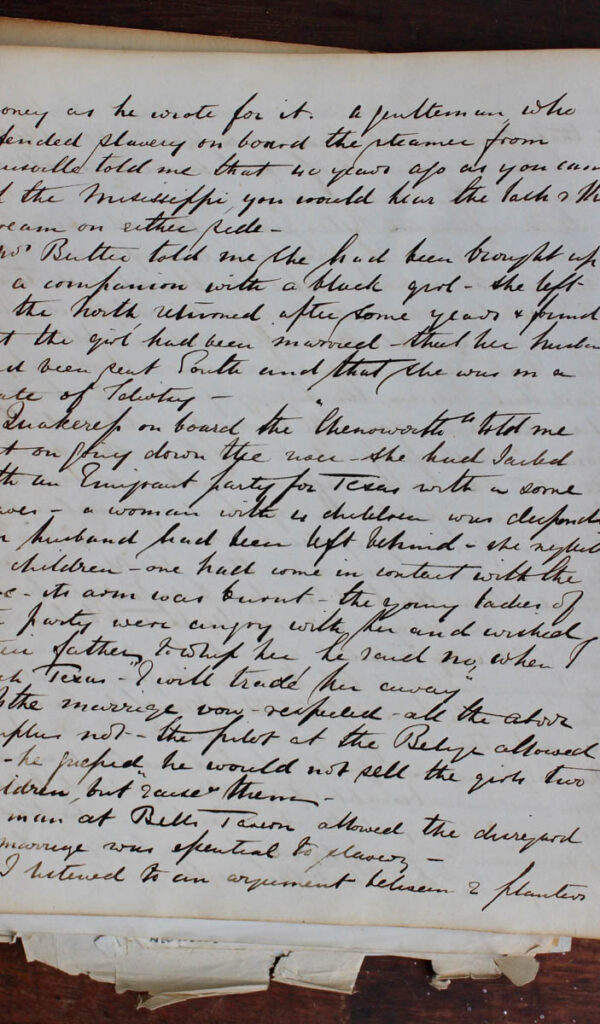 oney as he wrote for it. a gentleman who
fended slavery on board the steamer from
uisville told me that 40 years ago as you came
the Mississippi you would hear the lash & th
ream on either side –
Butler told me she had been brought up
a companion with a black girl – she left
the North returned after some years & found
t the girl had been married – that her husban
d been sent South and that she was in a
ate of Idiotcy –
Quakeress on board the "Chenoworth" told me
t on going down the river she had sailed
th an Emigrant party for Texas with some
aves – a woman with 4 children was
r husband had been left behind – she neglec
children – one had come in contact with the
– its arm was burnt – the young ladies of
party were angry with her and wished
eir father to whip her he said no, when I
ch Texas – "I will trade her away"
the marriage vow – respected – all the above
not – the pilot at the allowed
– he guessed he would not sell the girls two
ildren, but "raise" them –
man at Bells Tavern allowed the disregard
marriage was essential to slavery –
I listened to an argument between 2 planters